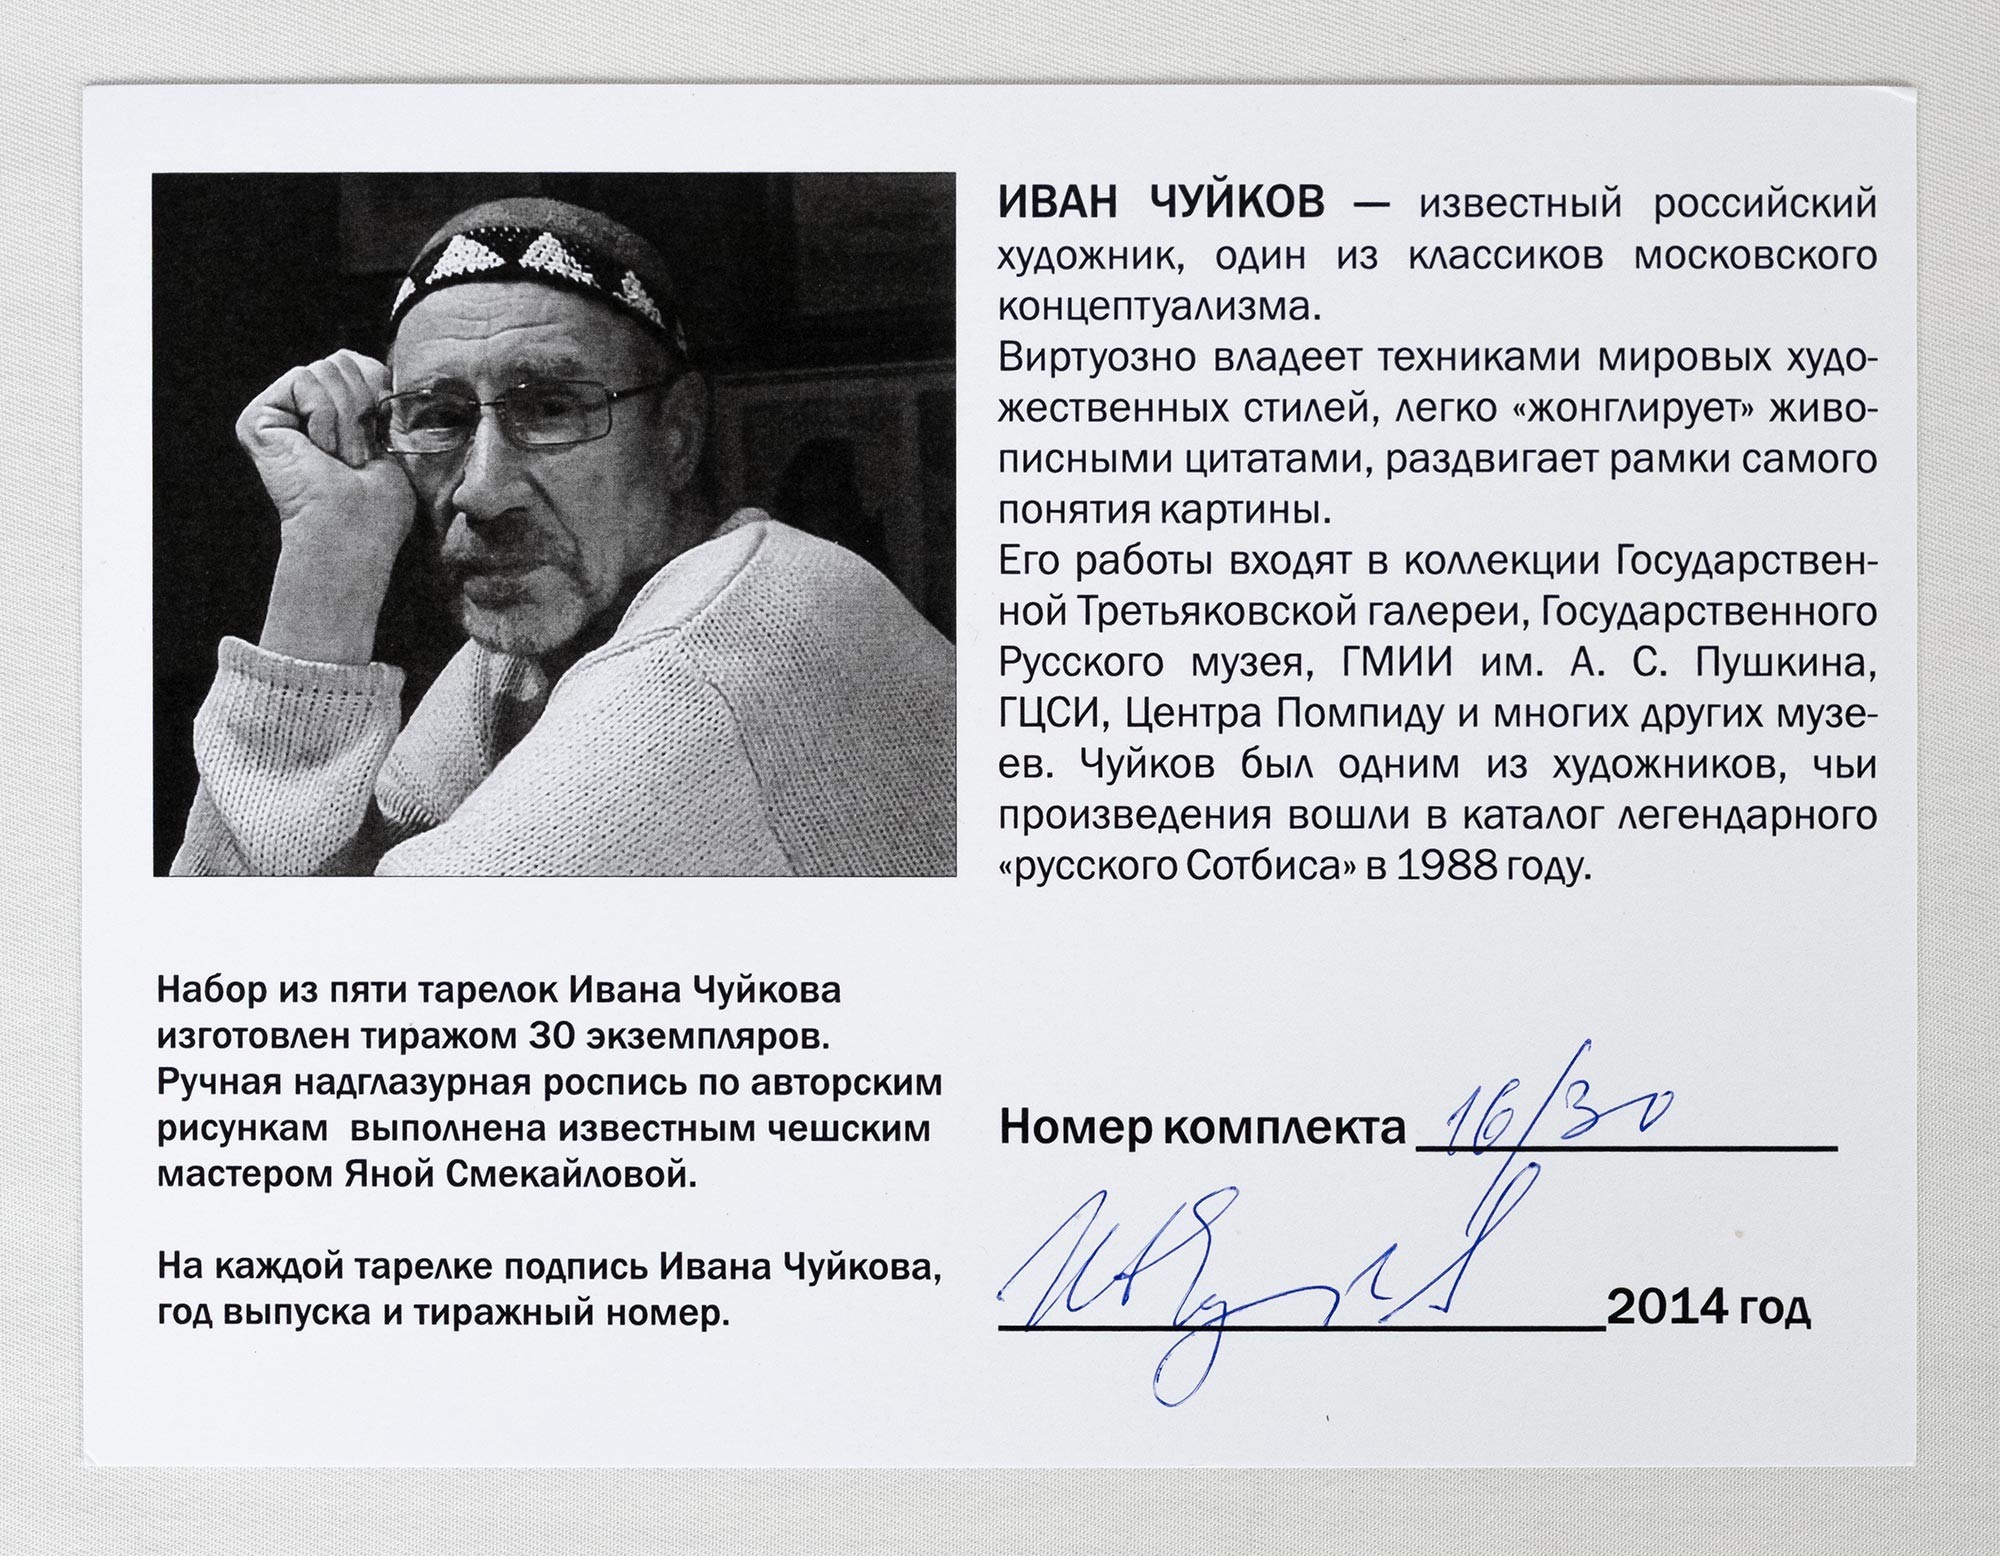 ИВАН ЧУЙКОВ — известный российский
художник, один из классиков московского
концептуализма.
Виртуозно владеет техниками мировых худо-
жественных стилей, легко «жонглирует» живо-
писными цитатами, раздвигает рамки самого
понятия картины.
Его работы входят в коллекции Государствен-
ной Третьяковской галереи, Государственного
Русского музея, ГМИИ им. А. С. Пушкина,
ГЦСИ, Центра Помпиду и многих других музе-
ев. Чуйков был одним из художников, чьи
произведения вошли в каталог легендарного
«русского Сотбиса» в 1988 году.
Набор из пяти тарелок Ивана Чуйкова
изготовлен тиражом 30 экземпляров.
Ручная надглазурная роспись по авторским
рисункам выполнена известным чешским
мастером Яной Смекайловой.
На каждой тарелке подпись Ивана Чуйкова,
год выпуска и тиражный номер.
Номер комплекта 16/30
2014 год